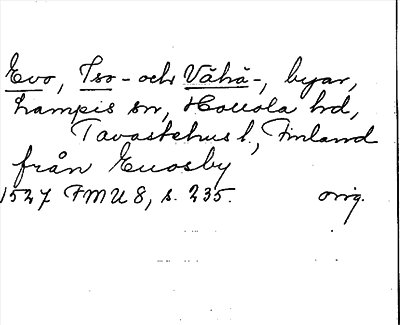 Evo, Iso- och Vähä-, byar,
Lampis sn, Hollola hd,
Tavastehus l., Finland
från Evosby
1527 FMU 8, s. 235. orig.